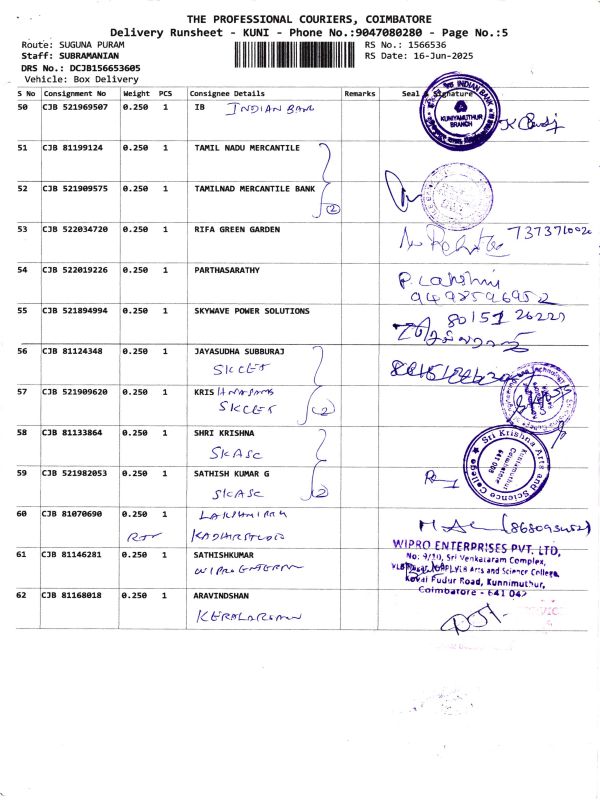 THE PROFESSIONAL COURIERS, COIMBATORE
Delivery Runsheet - KUNI - Phone No.:9047080280 - Page No.:5
Route: SUGUNA PURAM RS No.: 1566536
Staff: SUBRAMANIAN RS Date: 16-Jun-2025
DRS No.: DCJB156653605
Vehicle: Box Delivery
S No Consignment No Weight PCS Consignee Details Remarks Seal Signature
50 CJB 521969507 0.250 1 IB INDIAN BANK
INDIAN BANK
KUNIYAMUTHUR
BRANCH
51 CJB 81199124 0.250 1 TAMIL NADU MERCANTILE
52 CJB 521909575 0.250 1 TAMILNAD MERCANTILE BANK
2
53 CJB 522034720 0.250 1 RIFA GREEN GARDEN
54 CJB 522019226 0.250 1 PARTHASARATHY
P. Lakshmi
9498596952
55 CJB 521894994 0.250 1 SKYWAVE POWER SOLUTIONS
80151 26227
56 CJB 81124348 0.250 1 JAYASUDHA SUBBURAJ
SKCET
57 CJB 521909620 0.250 1 KRIS
SKCET 2
58 CJB 81133864 0.250 1 SHRI KRISHNA
SKASC
Sri Krishna Arts and Science College
Kuniamuthur
Coimbatore
641 008
59 CJB 521982053 0.250 1 SATHISH KUMAR G
SKASC 2
60 CJB 81070690 0.250 1
61 CJB 81146281 0.250 1 SATHISHKUMAR
WIPRO ENTERPRISES PVT. LTD,
No: 9/20, Sri Venkataram Complex,
Arts and Science College
Kovai Pudur Road, Kunnimuthur,
Coimbatore - 641 042
62 CJB 81168018 0.250 1 ARAVINDSHAN